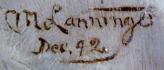 M Lanninge
Dec. 92.